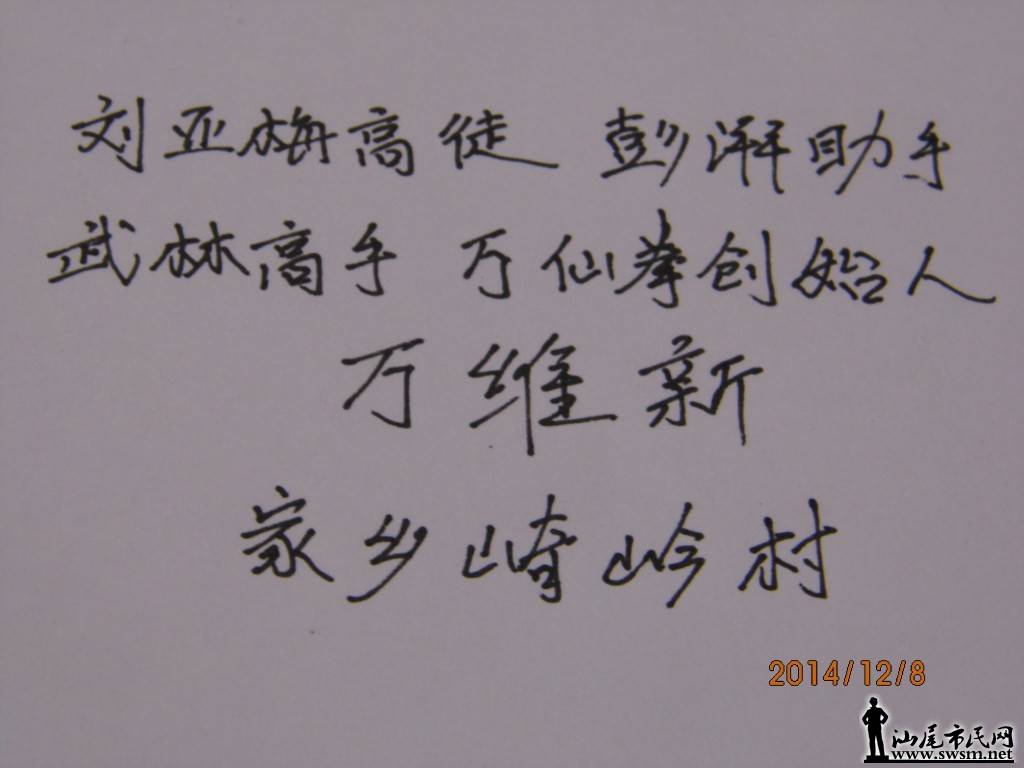 刘亚梅高徒 彭湃助手
武林高手 万仙拳创始人
万维新
家乡崎岭村
2014/12/8
汕尾市民网
www.swsm.net